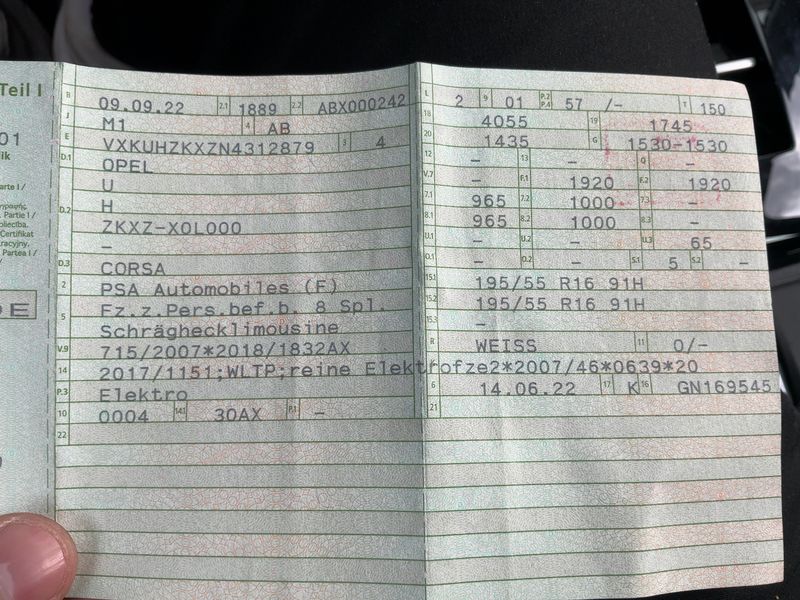 Teil I
01
B 09.09.22 2.1 1889 2.2 ABX000242
J M1 4 AB
E VXKUHZKXZN4312879 3 4
D.1 OPEL
U
H
D.2 ZKXZ-X0L000
–
D.3 CORSA
2 PSA Automobiles (F)
5 Fz.z.Pers.bef.b. 8 Spl.
Schräghecklimousine
V.9 715/2007*2018/1832AX
14 2017/1151;WLTP;reine Elektrofze2*2007/46*0639*20
P.3 Elektro
10 0004 14.1 30AX P.1 –
22
L 2 9 01 P.2 P.4 57 /– T 150
18 4055 19 1745
20 1435 G 1530-1530
12 – 13 – Q –
V.7 – F.1 1920 F.2 1920
7.1 965 7.2 1000 7.3 –
8.1 965 8.2 1000 8.3 –
U.1 – U.2 – U.3 65
O.1 – O.2 – S.1 5 S.2 –
15.1 195/55 R16 91H
15.2 195/55 R16 91H
15.3 –
R WEISS 11 0/–
6 14.06.22 17 K 16 GN169545
21